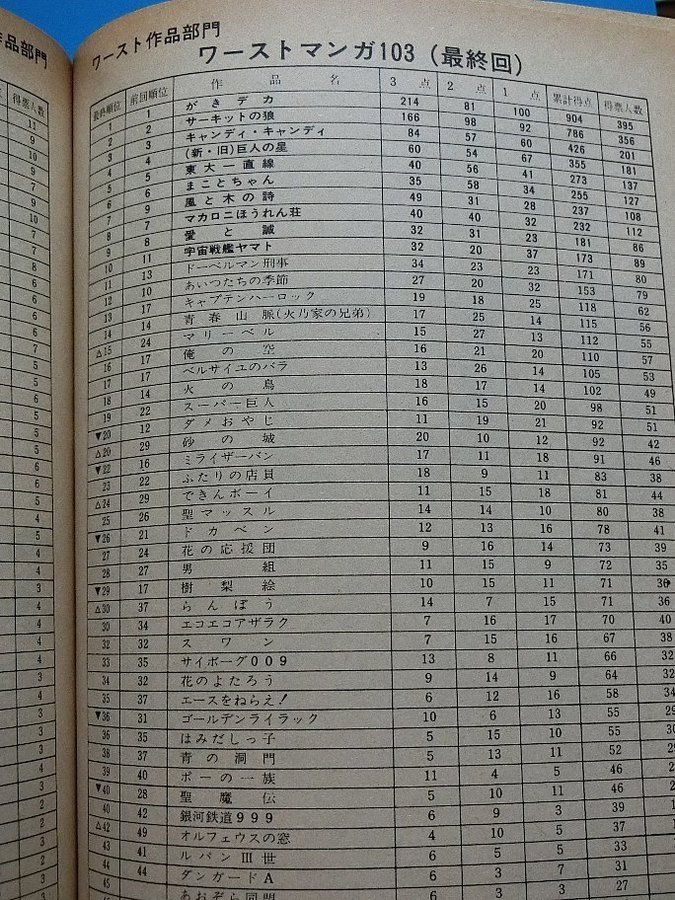 作品部門
得票人数
11
9
10
9
7
9
10
7
7
8
6
6
6
6
7
5
5
6
5
5
6
6
5
4
5
4
4
3
4
4
4
4
3
3
3
3
4
3
2
2
3
ワースト作品部門
ワーストマンガ103(最終回)
最終順位 前回順位 作品名 3点 2点 1点 累計得点 得票人数
1 1 がきデカ 214 81 100 904 395
2 2 サーキットの狼 166 98 92 786 356
3 3 キャンディ・キャンディ 84 57 60 426 201
4 4 (新・旧)巨人の星 60 54 67 355 181
5 5 東大一直線 40 56 41 273 137
6 6 まことちゃん 35 58 34 255 127
7 9 風と木の詩 49 31 28 237 108
8 7 マカロニほうれん荘 40 40 32 232 112
9 8 愛と誠 32 31 23 181 86
10 11 宇宙戦艦ヤマト 32 20 37 173 89
11 13 ドーベルマン刑事 34 23 23 171 80
12 10 あいつたちの季節 27 20 32 153 79
13 14 キャプテンハーロック 19 18 25 118 62
14 14 青春山脈(火乃家の兄弟) 17 25 14 115 56
△15 24 マリーベル 15 27 13 112 55
16 17 俺の空 16 21 20 110 57
17 17 ベルサイユのバラ 13 26 14 105 53
18 14 火の鳥 18 17 14 102 49
19 22 スーパー巨人 16 15 20 98 51
▼20 12 ダメおやじ 11 19 21 92 51
△20 29 砂の城 20 10 12 92 42
▼22 16 ミライザーバン 17 11 18 91 46
23 22 ふたりの店員 18 9 11 83 38
△24 29 できんボーイ 11 15 18 81 44
25 26 聖マッスル 14 14 10 80 38
▼26 21 ドカベン 12 13 16 78 41
27 24 花の応援団 9 16 14 73 39
28 27 男組 11 15 9 72 35
▼29 17 樹梨絵 10 15 11 71 36
△30 37 らんぽう 14 7 15 71 36
30 34 エコエコアザラク 7 16 17 70 40
32 32 スワン 7 15 16 67 38
33 35 サイボーグ009 13 8 11 66 32
34 32 花のよたろう 9 14 9 64 32
35 37 エースをねらえ! 6 12 16 58 34
▼36 31 ゴールデンライラック 10 6 13 55 29
36 35 はみだしっ子 5 15 10 55 30
38 37 青の洞門 5 13 11 52 29
39 40 ポーの一族 11 4 5 46 2
▼40 28 聖魔伝 5 10 11 46 2
40 42 銀河鉄道999 6 9 3 39 1
△42 49 オルフェウスの窓 4 10 5 37 1
43 41 ルパンIII世 6 5 5 33
44 44 ダンガードA 6 3 7 31
45 あおぞら同盟 6 3 3 27